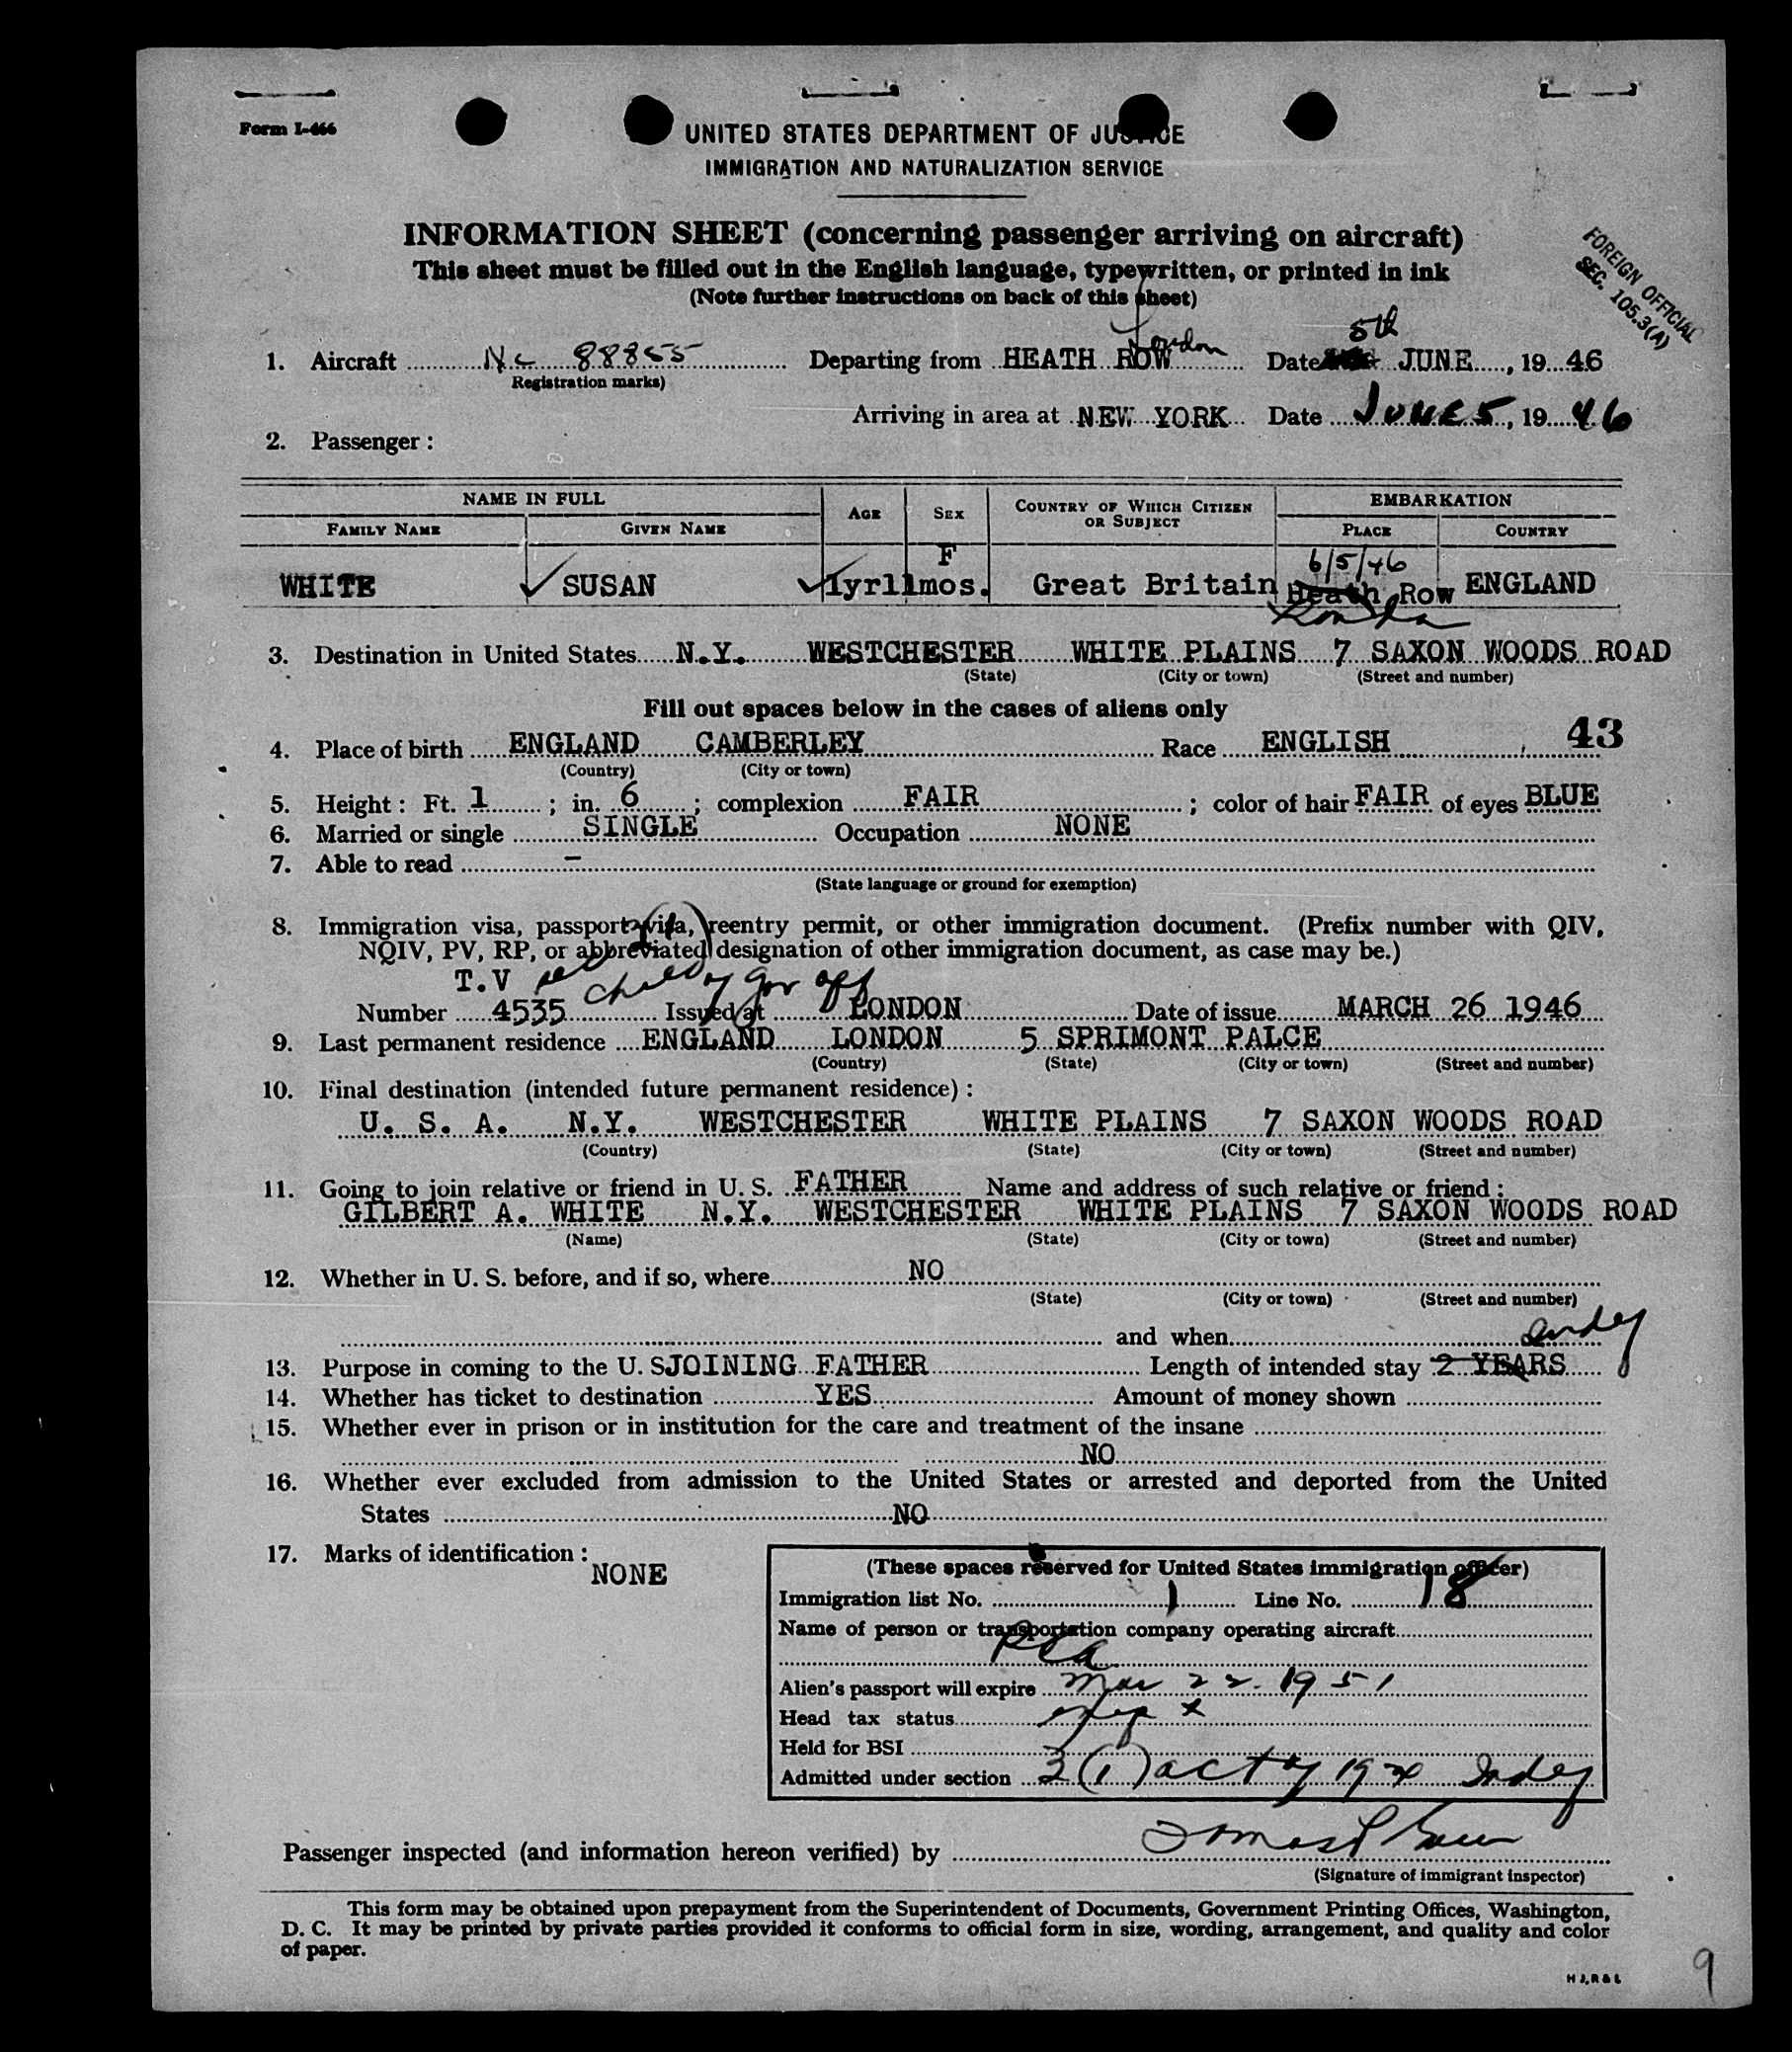 Form I-466
UNITED STATES DEPARTMENT OF JUSTICE
IMMIGRATION AND NATURALIZATION SERVICE
INFORMATION SHEET (concerning passenger arriving on aircraft)
This sheet must be filled out in the English language, typewritten, or printed in ink
(Note further instructions on back of this sheet)
FOREIGN OFFICIAL
SEC. 105.3(A)
London 5th
1. Aircraft Nc 88855 Departing from HEATH ROW Date JUNE, 19 46
(Registration marks)
Arriving in area at NEW YORK Date JUNE 5, 19 46
2. Passenger:
NAME IN FULL AGE SEX COUNTRY OF WHICH CITIZEN OR SUBJECT EMBARKATION
FAMILY NAME GIVEN NAME PLACE COUNTRY
F 6/5/46
WHITE SUSAN 1yr11mos. Great Britain Heath Row ENGLAND
London
3. Destination in United States N.Y. WESTCHESTER WHITE PLAINS 7 SAXON WOODS ROAD
(State) (City or town) (Street and number)
Fill out spaces below in the cases of aliens only
43
4. Place of birth ENGLAND CAMBERLEY Race ENGLISH
(Country) (City or town)
5. Height: Ft. 1; in. 6; complexion FAIR; color of hair FAIR of eyes BLUE
6. Married or single SINGLE Occupation NONE
7. Able to read –
(State language or ground for exemption)
8. Immigration visa, passport visa, reentry permit, or other immigration document. (Prefix number with QIV,
NQIV, PV, RP, or abbreviated designation of other immigration document, as case may be.)
T.V child of gov off
Number 4535 Issued at LONDON Date of issue MARCH 26 1946
9. Last permanent residence ENGLAND LONDON 5 SPRIMONT PALCE
(Country) (State) (City or town) (Street and number)
10. Final destination (intended future permanent residence):
U. S. A. N.Y. WESTCHESTER WHITE PLAINS 7 SAXON WOODS ROAD
(Country) (State) (City or town) (Street and number)
11. Going to join relative or friend in U. S. FATHER Name and address of such relative or friend:
GILBERT A. WHITE N.Y. WESTCHESTER WHITE PLAINS 7 SAXON WOODS ROAD
(Name) (State) (City or town) (Street and number)
12. Whether in U. S. before, and if so, where NO
(State) (City or town) (Street and number)
and when
Indef
13. Purpose in coming to the U. S JOINING FATHER Length of intended stay 2 YEARS
14. Whether has ticket to destination YES Amount of money shown
15. Whether ever in prison or in institution for the care and treatment of the insane
NO
16. Whether ever excluded from admission to the United States or arrested and deported from the United
States NO
17. Marks of identification:
NONE
(These spaces reserved for United States immigration officer)
Immigration list No. 1 Line No. 18
Name of person or transportation company operating aircraft
Alien's passport will expire Mar 22. 1951
Head tax status
Held for BSI
Admitted under section 3(1) act of 1924 Indef
Passenger inspected (and information hereon verified) by
(Signature of immigrant inspector)
This form may be obtained upon prepayment from the Superintendent of Documents, Government Printing Offices, Washington,
D. C. It may be printed by private parties provided it conforms to official form in size, wording, arrangement, and quality and color
of paper.
H J, R & L
9